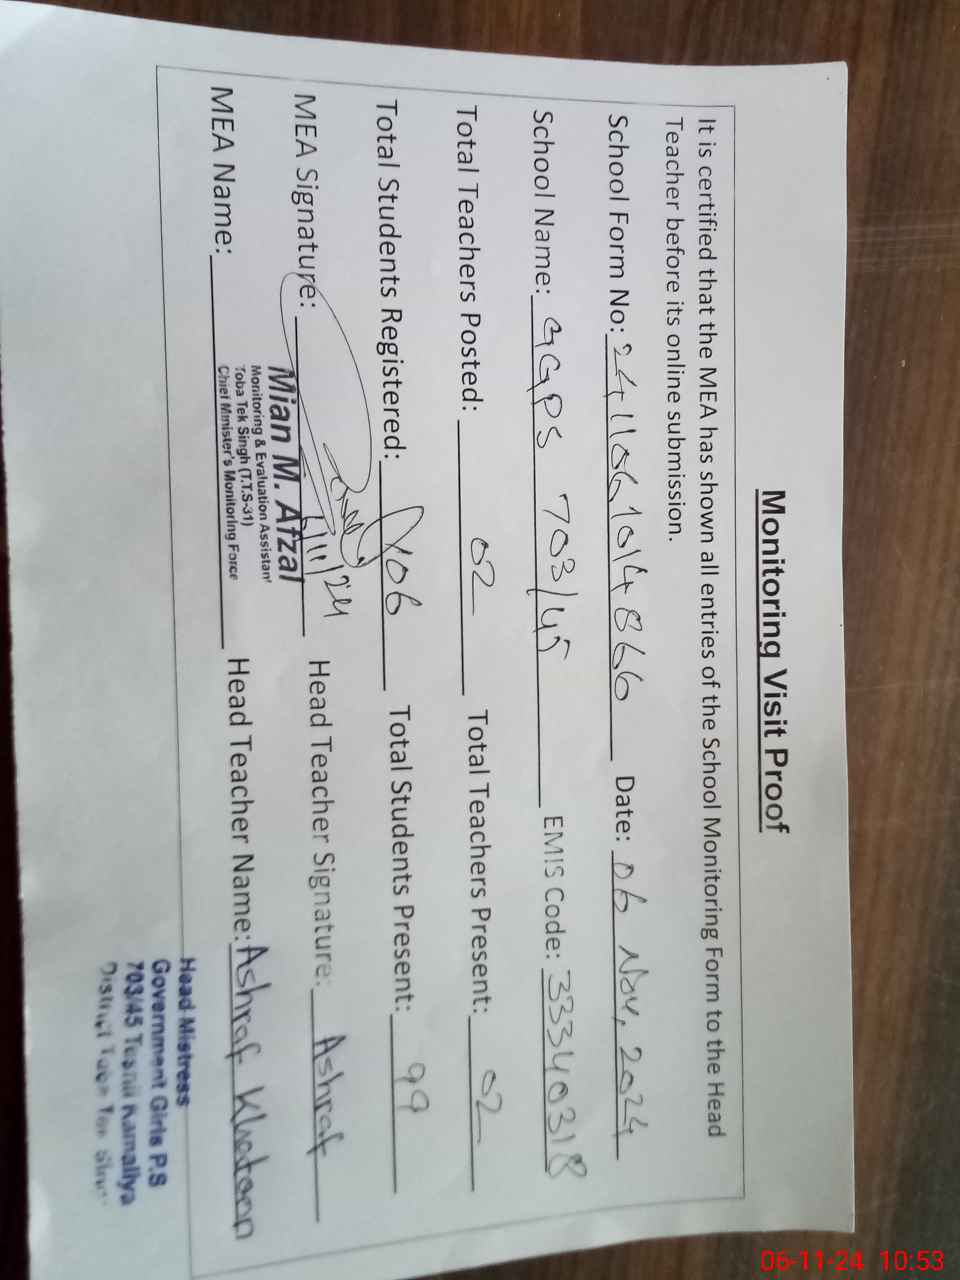 Monitoring Visit Proof
It is certified that the MEA has shown all entries of the School Monitoring Form to the Head
Teacher before its online submission.
School Form No: 2411061014866 Date: 06 Nov, 2024
School Name: GGPS 703/45 EMIS Code: 33340318
Total Teachers Posted: 02 Total Teachers Present: 02
Total Students Registered: 106 Total Students Present: 99
MEA Signature: 6/11/24 Head Teacher Signature: Ashraf
Mian M. Afzal
Monitoring & Evaluation Assistant
Toba Tek Singh (T.T.S-31)
Chief Minister's Monitoring Force
MEA Name: Head Teacher Name: Ashraf Khatoon
Head Mistress
Government Girls P.S
703/45 Tehsil Kamaliya
District
06-11-24 10:53